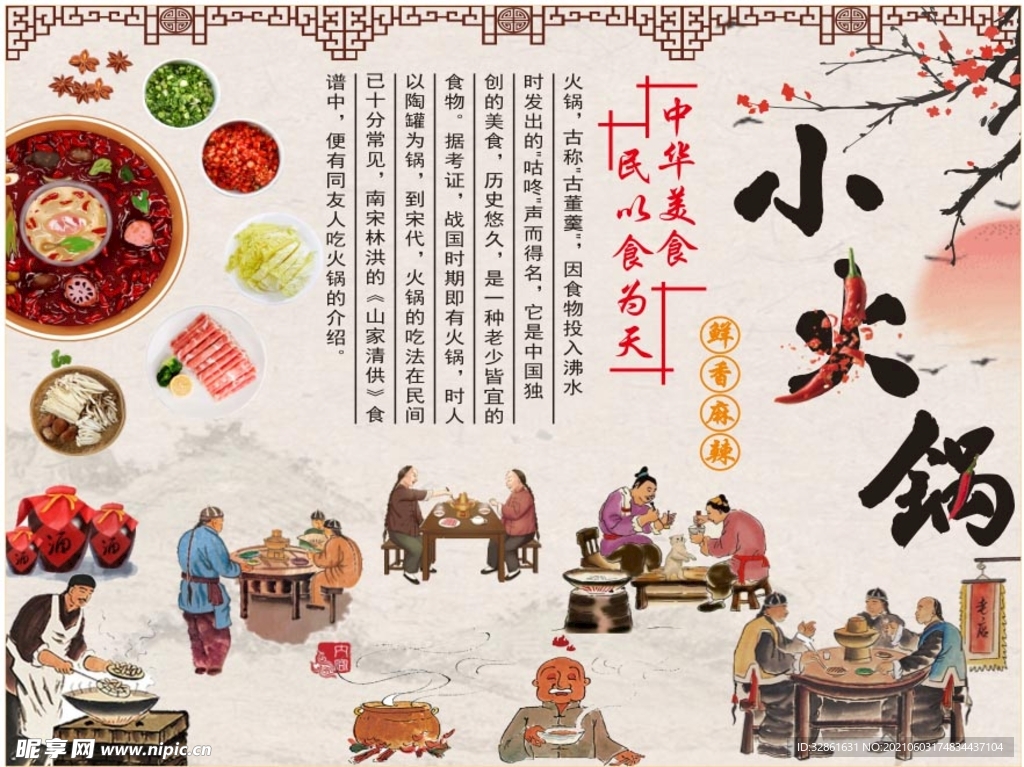 小火锅
鲜香麻辣
中华美食
民以食为天
火锅，古称"古董羹"，因食物投入沸水
时发出的"咕咚"声而得名，它是中国独
创的美食，历史悠久，是一种老少皆宜的
食物。据考证，战国时期即有火锅，时人
以陶罐为锅，到宋代，火锅的吃法在民间
已十分常见，南宋林洪的《山家清供》食
谱中，便有同友人吃火锅的介绍。
酒
酒
酒
昵享网 www.nipic.cn
ID:32861631 NO:20210603174834437104